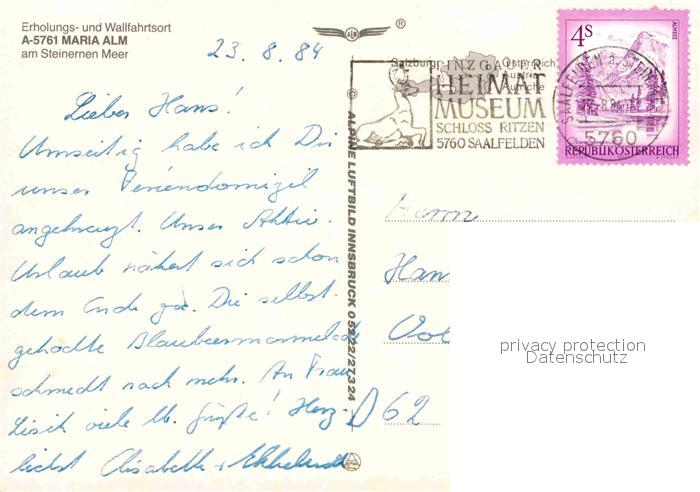 Erholungs- und Wallfahrtsort
A-5761 MARIA ALM
am Steinernen Meer
23. 8. 84
Lieber Hans!
Umseitig habe ich Dir
unser Feriendomizil
angekreuzt. Unser Aktiv-
Urlaub nähert sich schon
dem Ende zu. Die selbst-
gekochte Blaubeermarmelade
schmeckt nach mehr. An Frau
viele lb. Grüße! Herz-
lichst Elisabeth + Ekkehardt
®
©
ALPINE LUFTBILD INNSBRUCK 05222/27324
Salzburg
Österreich
Austria
Autriche
PINZGAUER
HEIMAT
MUSEUM
SCHLOSS RITZEN
5760 SAALFELDEN
4S
ALMSEE
REPUBLIK ÖSTERREICH
SAALFELDEN a. STEIN
5760
Herrn
Han
D 62
privacy protection
Datenschutz